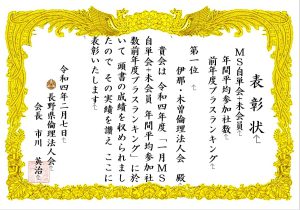 表彰状
MS自単会+未会員
年間平均参加社数
前年度プラスランキング
第一位
伊那・木曽倫理法人会 殿
貴会は 令和四年度「一月MS
自単会+未会員 年間平均参加社
数前年度プラスランキング」に於
いて 頭書の成績を収められまし
たので その実績を讃え ここに
表彰いたします
令和四年二月七日
長野県倫理法人会
会長 市川